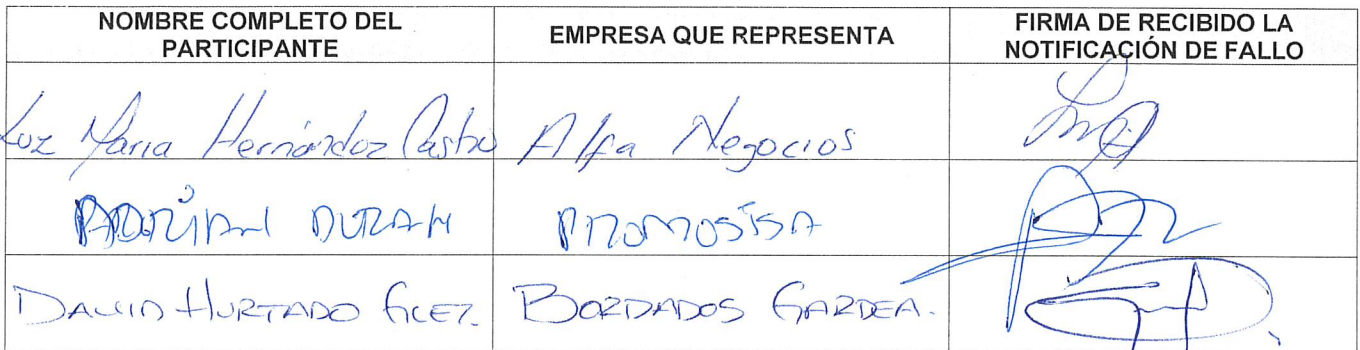 NOMBRE COMPLETO DEL PARTICIPANTE EMPRESA QUE REPRESENTA FIRMA DE RECIBIDO LA NOTIFICACIÓN DE FALLO
Luz María Hernández Castro Alfa Negocios
ADRIÁN DURAN PROMOSISA
DAVID HURTADO BORDADOS GARDEA.